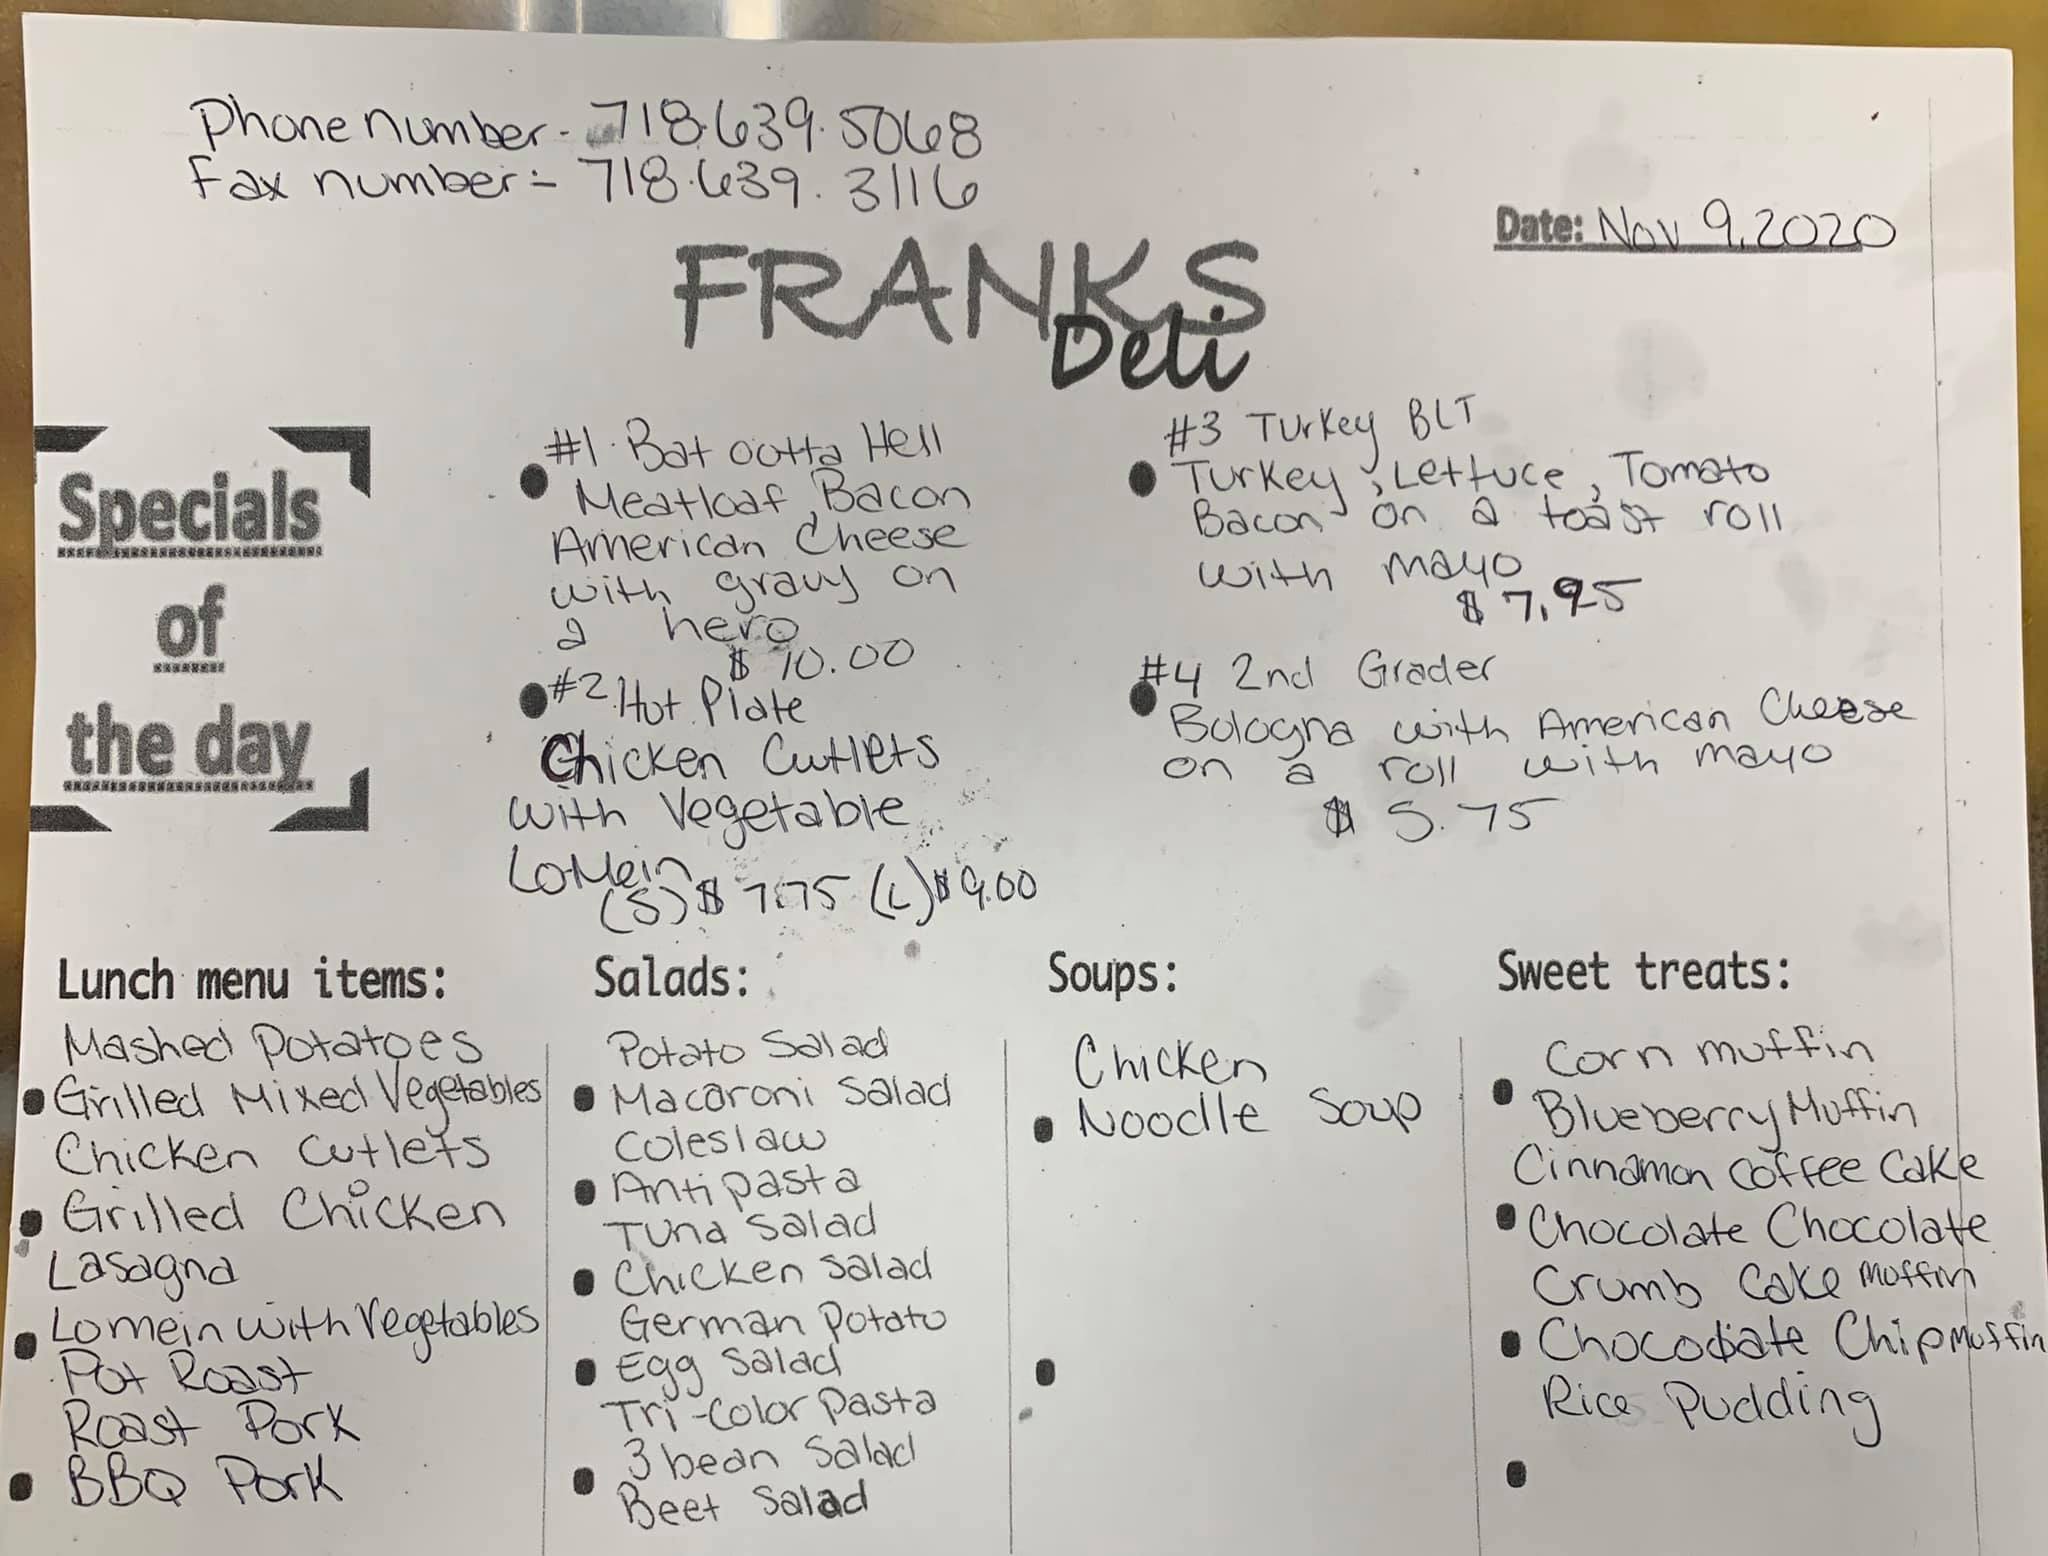 Phone number - 718.639.5068
Fax number:- 718.639.3116
Date: Nov 9, 2020
FRANKS
Deli
Specials
of
the day
#1 Bat outta Hell
Meatloaf, Bacon
American Cheese
with gravy on
a hero
$ 10.00
#2 Hot Plate
Chicken Cutlets
with Vegetable
LoMein
(S) $ 7.75 (L) $ 9.00
#3 Turkey BLT
Turkey, Lettuce, Tomato
Bacon on a toast roll
with mayo
$ 7.95
#4 2nd Grader
Bologna with American Cheese
on a roll with mayo
$ 5.75
Lunch menu items:
Mashed Potatoes
Grilled Mixed Vegetables
Chicken Cutlets
Grilled Chicken
Lasagna
Lomein with Vegetables
Pot Roast
Roast Pork
BBQ Pork
Salads:
Potato Salad
Macaroni Salad
Coleslaw
Antipasta
Tuna Salad
Chicken Salad
German Potato
Egg Salad
Tri-Color Pasta
3 bean Salad
Beet Salad
Soups:
Chicken
Noodle Soup
Sweet treats:
Corn muffin
Blueberry Muffin
Cinnamon Coffee Cake
Chocolate Chocolate
Crumb Cake Muffin
Chocolate Chip Muffin
Rice Pudding